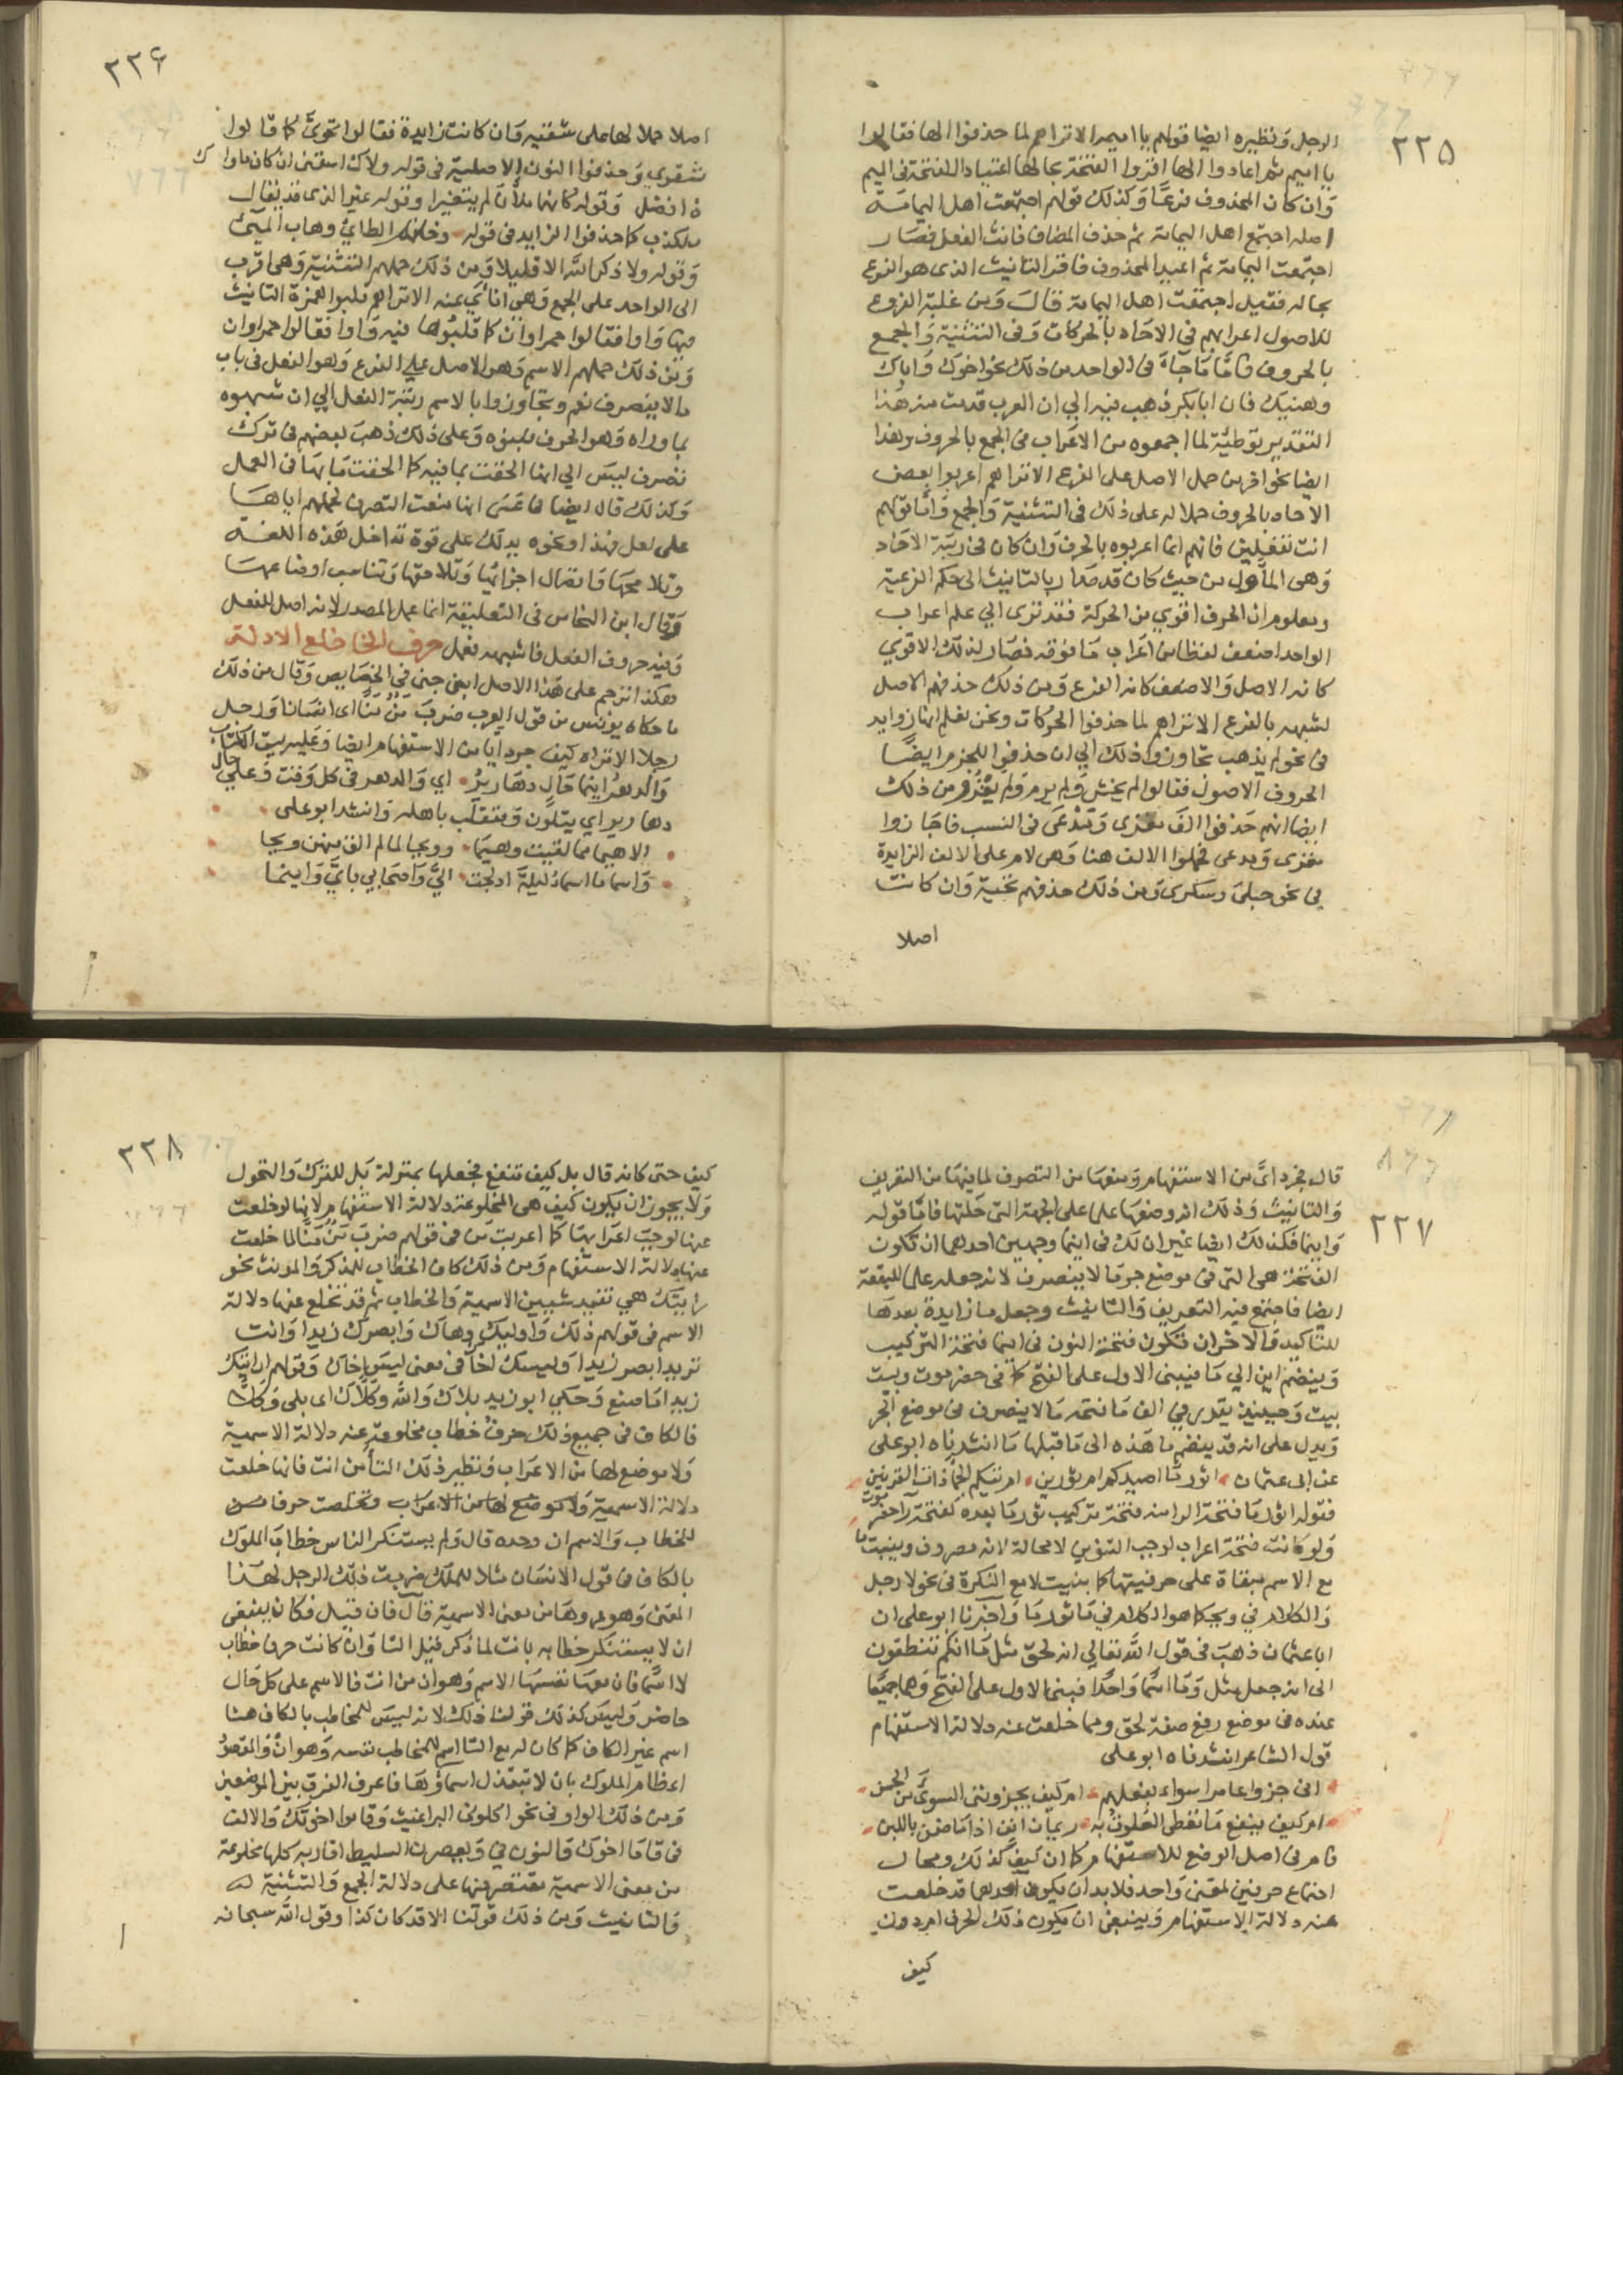 ٢٢٥
الرجل ونظيره ايضا قولهم يا اميمة الا تراهم لما حذفوا الها فقالوا
يا اميم ثم اعادوا الها اقروا الفتحة بحالها اعتيادا للفتحة في الميم
وان كان المحذوف فرعا وكذلك قولهم اجتمعت اهل اليمامة
اصله اجتمع اهل اليمامة ثم حذف المضاف فانث الفعل فصار
اجتمعت اليمامة ثم اعيد المحذوف فاقر التانيث الذي هو الفرع
بحاله فقيل اجتمعت اهل اليمامة قال ومن غلبة الفروع
للاصول اعرابهم في الاحاد بالحركات وفي التثنية والجمع
بالحروف فاما ما جاء في الواحد من ذلك نحو اخوك واباك
وهنيك فان ابا بكر ذهب فيه الي ان العرب قدمت منه هذا
التقدير توطئة لما اجمعوه من الاعراب في الجمع بالحروف وهذا
ايضا نحو اخر من حمل الاصل على الفرع الا تراهم اعربوا بعض
الاحاد بالحروف حملا له على ذلك في التثنية والجمع واما قولهم
انت تفعلين فانهم انما اعربوه بالحرف وان كان في رتبة الاحاد
وهي الاول من حيث كان قد صار بالتانيث الى حكم الفرعية
ومعلوم ان الحرف اقوي من الحركة فقد تري الي علم اعراب
الواحد اضعف لفظا من اعراب ما فوقه فصار لذلك الاقوي
كانه الاصل والاضعف كانه الفرع ومن ذلك حذفهم الاصل
لشبهه بالفرع الا تراهم لما حذفوا الحركات ونحن نعلم انها زوايد
في نحو لم يذهب تجاوزوا ذلك الي ان حذفوا للجزم ايضا
الحروف الاصول فقالوا لم يخش ولم يرم ولم يغز ومن ذلك
ايضا انهم حذفوا الف مغزى ومدعى في النسب فاجازوا
مغزى ومدعى فحملوا الالف هنا وهي لام على الالف الزايدة
في نحو حبلى وسكرى ومن ذلك حذفهم تحية وان كانت
اصلا
٢٢٦
اصلا حملا لها على شقية وان كانت زايدة فقالوا تحوي كما قالوا
شقوي وحذفوا النون الاصلية في قوله ولاك اسقني ان كان ماوك
ذا فضل وقوله كانهما ملآن لم يتغيرا وقوله غير الذي قد يقال
ملكذب كما حذفوا الزايد في قوله وحاتم الطائي وهاب المئي
وقوله ولا ذاكر الله الا قليلا ومن ذلك حملهم التثنية وهي اقرب
الى الواحد على الجمع وهي اناي عنه الا تراهم قلبوا همزة التانيث
فيها واوا فقالوا حمراوان كما قلبوها فيه واوا فقالوا حمراوات
ومن ذلك حملهم الاسم وهو الاصل علي الفرع وهو الفعل في باب
ما لا ينصرف نعم وتجاوزوا بالاسم رتبة الفعل الي ان شبهوه
بما وراه وهو الحرف فبنوه وعلى ذلك ذهب بعضهم في ترك
تصرف ليس الي انها الحقت بما فيه كما الحقت ما بها في العمل
وكذلك قال ايضا في عسى انها منعت التصرف لحملهم اياها
على لعل فهذا ونحوه يدلك على قوة تداخل هذه اللغة
وتلا محها واتصال اجزائها وتلاحقها وتناسب اوضاعها
وقال ابن النحاس في التعليقة انما عمل المصدر لانه اصل للفعل
وفيه حروف الفعل فاشبهه فعمل حرف الخا خلع الادلة
هكذا ترجم على هذا الاصل ابن جني في الخصايص وقال من ذلك
ما حكاه يونس من قول العرب ضرب من منا اي انسان او رجل
رجلا الا تراه كيف جرد ايا من الاستفهام ايضا وعليه بيت الكتاب
والدهر ايتما حال دهارير اي والدهر في كل وقت وعلي حال
دهارير اي يتلون ويتقلب باهله وانشد ابو على
الا هيما مما لقيت وهيما وويحا لمن لم الق منهن ويحا
واسما ما اسما ليلة ادلجت الي واصحابي باي واينما
٢٢٧
قال فجرد اي من الاستفهام ومنعها من التصرف لما فيها من التعريف
والتانيث وذلك انه وضعها علما على الجهة التي حلتها فاما قوله
واينما فكذلك ايضا غير ان لك في اينما وجهين احدهما ان تكون
الفتحة هي التي في موضع جر ما لا ينصرف لانه جعله علما للبقعة
ايضا فاجتمع فيه التعريف والتانيث وجعل ما زايدة بعدها
للتاكيد والاخر ان تكون فتحة النون في اينما فتحة التركيب
وينضم اين الي ما فيبنى الاول على الفتح كما في حضر موت وبيت
بيت وحينئذ يقدر في الف ما فتحة ما لا ينصرف في موضع الجر
ويدل على انه قد ينضم ما هذه الى ما قبلها ما انشدناه ابو علي
عن ابي عثمان اثور ما اصيدكم ام ثورين ام تيكم الجماء ذات القرنين
فقوله اثور ما فتحة الرا منه فتحة تركيب ثور ما بعده كفتحة را حضر موت
ولو كانت فتحة اعراب لوجب التنوين لا محالة لانه مصروف وبنيت ما
مع الاسم مبقاة على حرفيتها كما بنيت لا مع النكرة في نحو لا رجل
والكلام في ويحما هو الكلام في اثور ما واخبرنا ابو على ان
ابا عثمان ذهب في قول الله تعالي انه لحق مثل ما انكم تنطقون
الى انه جعل مثل وما اسما واحدا فبنى الاول على الفتح وهما جميعا
عنده في موضع رفع صفة لحق ومما خلعت عنه دلالة الاستفهام
قول الشاعر انشدناه ابو على
انى جزوا عامرا سواء بفعلهم ام كيف يجزونني السوءى من الحسن
ام كيف ينفع ما تعطى العلوق به رئمان انف اذا ما ضن باللبن
فام في اصل الوضع للاستفهام كما ان كيف كذلك ومحال
اجتماع حرفين لمعنى واحد فلا بد ان يكون احدهما قد خلعت
عنه دلالة الاستفهام وينبغي ان يكون ذلك الحرف ام دون
كيف
٢٢٨
كيف حتى كانه قال بل كيف تنفع فجعلها بمنزلة بل للترك والتحول
ولا يجوز ان يكون كيف هي المخلوعة دلالة الاستفهام لانها لو خلعت
عنها لوجب اعرابها كما اعربت من في قولهم ضرب من منا لما خلعت
عنها دلالة الاستفهام ومن ذلك كاف الخطاب للمذكر والمونث نحو
رايتك هي تفيد شيين الاسمية والخطاب ثم قد تخلع عنها دلالة
الاسم في قولهم ذلك واوليك وهاك وابصرك زيدا وانت
تريد ابصر زيدا وليسك اخا في معنى ليس اخاك وقولهم ارايتك
زيدا ما صنع وحكي ابو زيد بلاك والله وكلاك اي بلى وكلا
فالكاف في جميع ذلك حرف خطاب مخلوعة عنه دلالة الاسمية
ولا موضع لها من الاعراب ونظير ذلك التا من انت فانها خلعت
دلالة الاسمية ولا موضع لها من الاعراب وتخلصت حرفا
للخطاب والاسم ان وحده قال ولم يستنكر الناس خطاب الملوك
بالكاف في قول الانسان مثلا للملك ضربت ذلك الرجل لهذا
المعنى وهو عروها من معنى الاسمية قال فان قيل فكان ينبغي
ان لا يستنكر خطابه بانت لما ذكر فيل التا وان كانت حرف خطاب
لا اسما فان معها نفسها الاسم وهو ان من انت فالاسم على كل حال
حاضر وليس كذلك قولنا ذلك لانه ليس للمخاطب بالكاف هنا
اسم غير الكاف كما كان له مع التا اسم للمخاطب نفسه وهو ان والمقصود
اعظام الملوك بان لا تبتذل اسماؤها فاعرف الفرق بين الموضعين
ومن ذلك الواو في نحو اكلوني البراغيث وقاموا اخوتك والالف
في قاما اخوك والنون في ويعصرن السليط اقاربه كلها مخلوعة
من معنى الاسمية مقتصر فيها على دلالة الجمع والتثنية
والتانيث ومن ذلك قولنا الا قد كان كذا وقول الله سبحانه